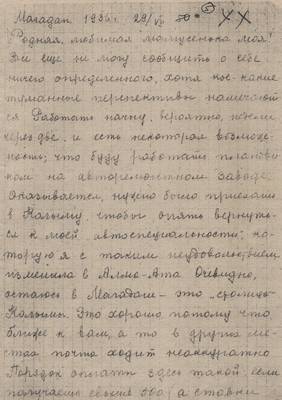 Магадан 1936г. 29/VI XX
Родная, любимая мамусенька моя!
Все еще не могу сообщить о себе
ничего определенного, хотя кое-какие
туманные перспективы намечают-
ся Работать начну, вероятно, недели
через две, и есть некоторая возмож-
ность, что буду работать плановин-
ком на авторемонтном заводе.
Оказывается, нужно было приехать
в Колыму, чтобы опять вернуть-
ся к моей автоспециальности, ко-
торую я с таким неудовольствием
изменила в Алма-Ата Очевидно,
остаюсь в Магадане - это "столица"
Колымы. Это хорошо потому что
ближе к вам, а то в других ме-
стах почта ходит неаккуратно
Порядок оплаты здесь такой: если
получаешь свыше 500, а ставки